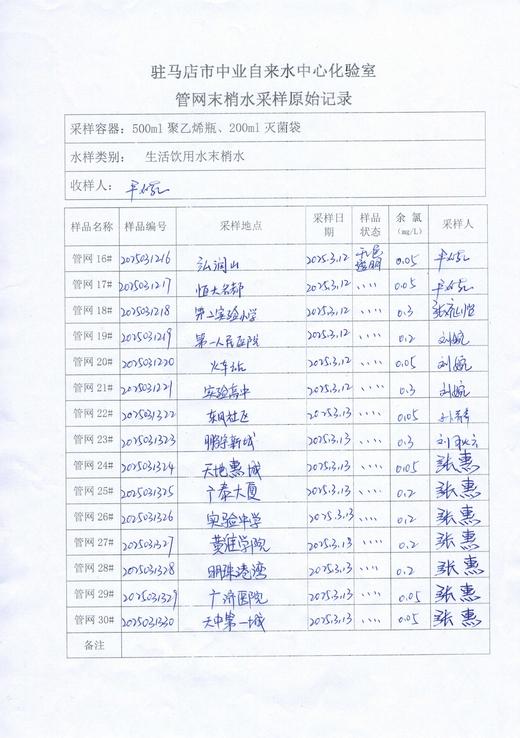 驻马店市中业自来水中心化验室
管网末梢水采样原始记录
采样容器：500ml 聚乙烯瓶、200ml 灭菌袋
水样类别： 生活饮用水末梢水
收样人：
样品名称 样品编号 采样地点 采样日期 样品状态 余氯(mg/L) 采样人
管网 16# 2025031216 弘润山 2025.3.12 无色透明 0.05
管网 17# 2025031217 恒大名都 2025.3.12 〃〃 0.05
管网 18# 2025031218 第二实验小学 2025.3.12 〃〃 0.3
管网 19# 2025031219 第一人民医院 2025.3.12 〃〃 0.2 刘婉
管网 20# 2025031220 火车站 2025.3.12 〃〃 0.05 刘婉
管网 21# 2025031221 实验高中 2025.3.12 〃〃 0.3 刘婉
管网 22# 2025031322 东风社区 2025.3.13 〃〃 0.05
管网 23# 2025031323 鹏宇新城 2025.3.13 〃〃 0.3
管网 24# 2025031324 天地惠城 2025.3.13 〃〃 0.05 张惠
管网 25# 2025031325 广泰大厦 2025.3.13 〃〃 0.2 张惠
管网 26# 2025031326 实验中学 2025.3.13 〃〃 0.2 张惠
管网 27# 2025031327 黄淮学院 2025.3.13 〃〃 0.2 张惠
管网 28# 2025031328 明珠港湾 2025.3.13 〃〃 0.2 张惠
管网 29# 2025031329 广济医院 2025.3.13 〃〃 0.05 张惠
管网 30# 2025031330 天中第一城 2025.3.13 〃〃 0.05 张惠
备注